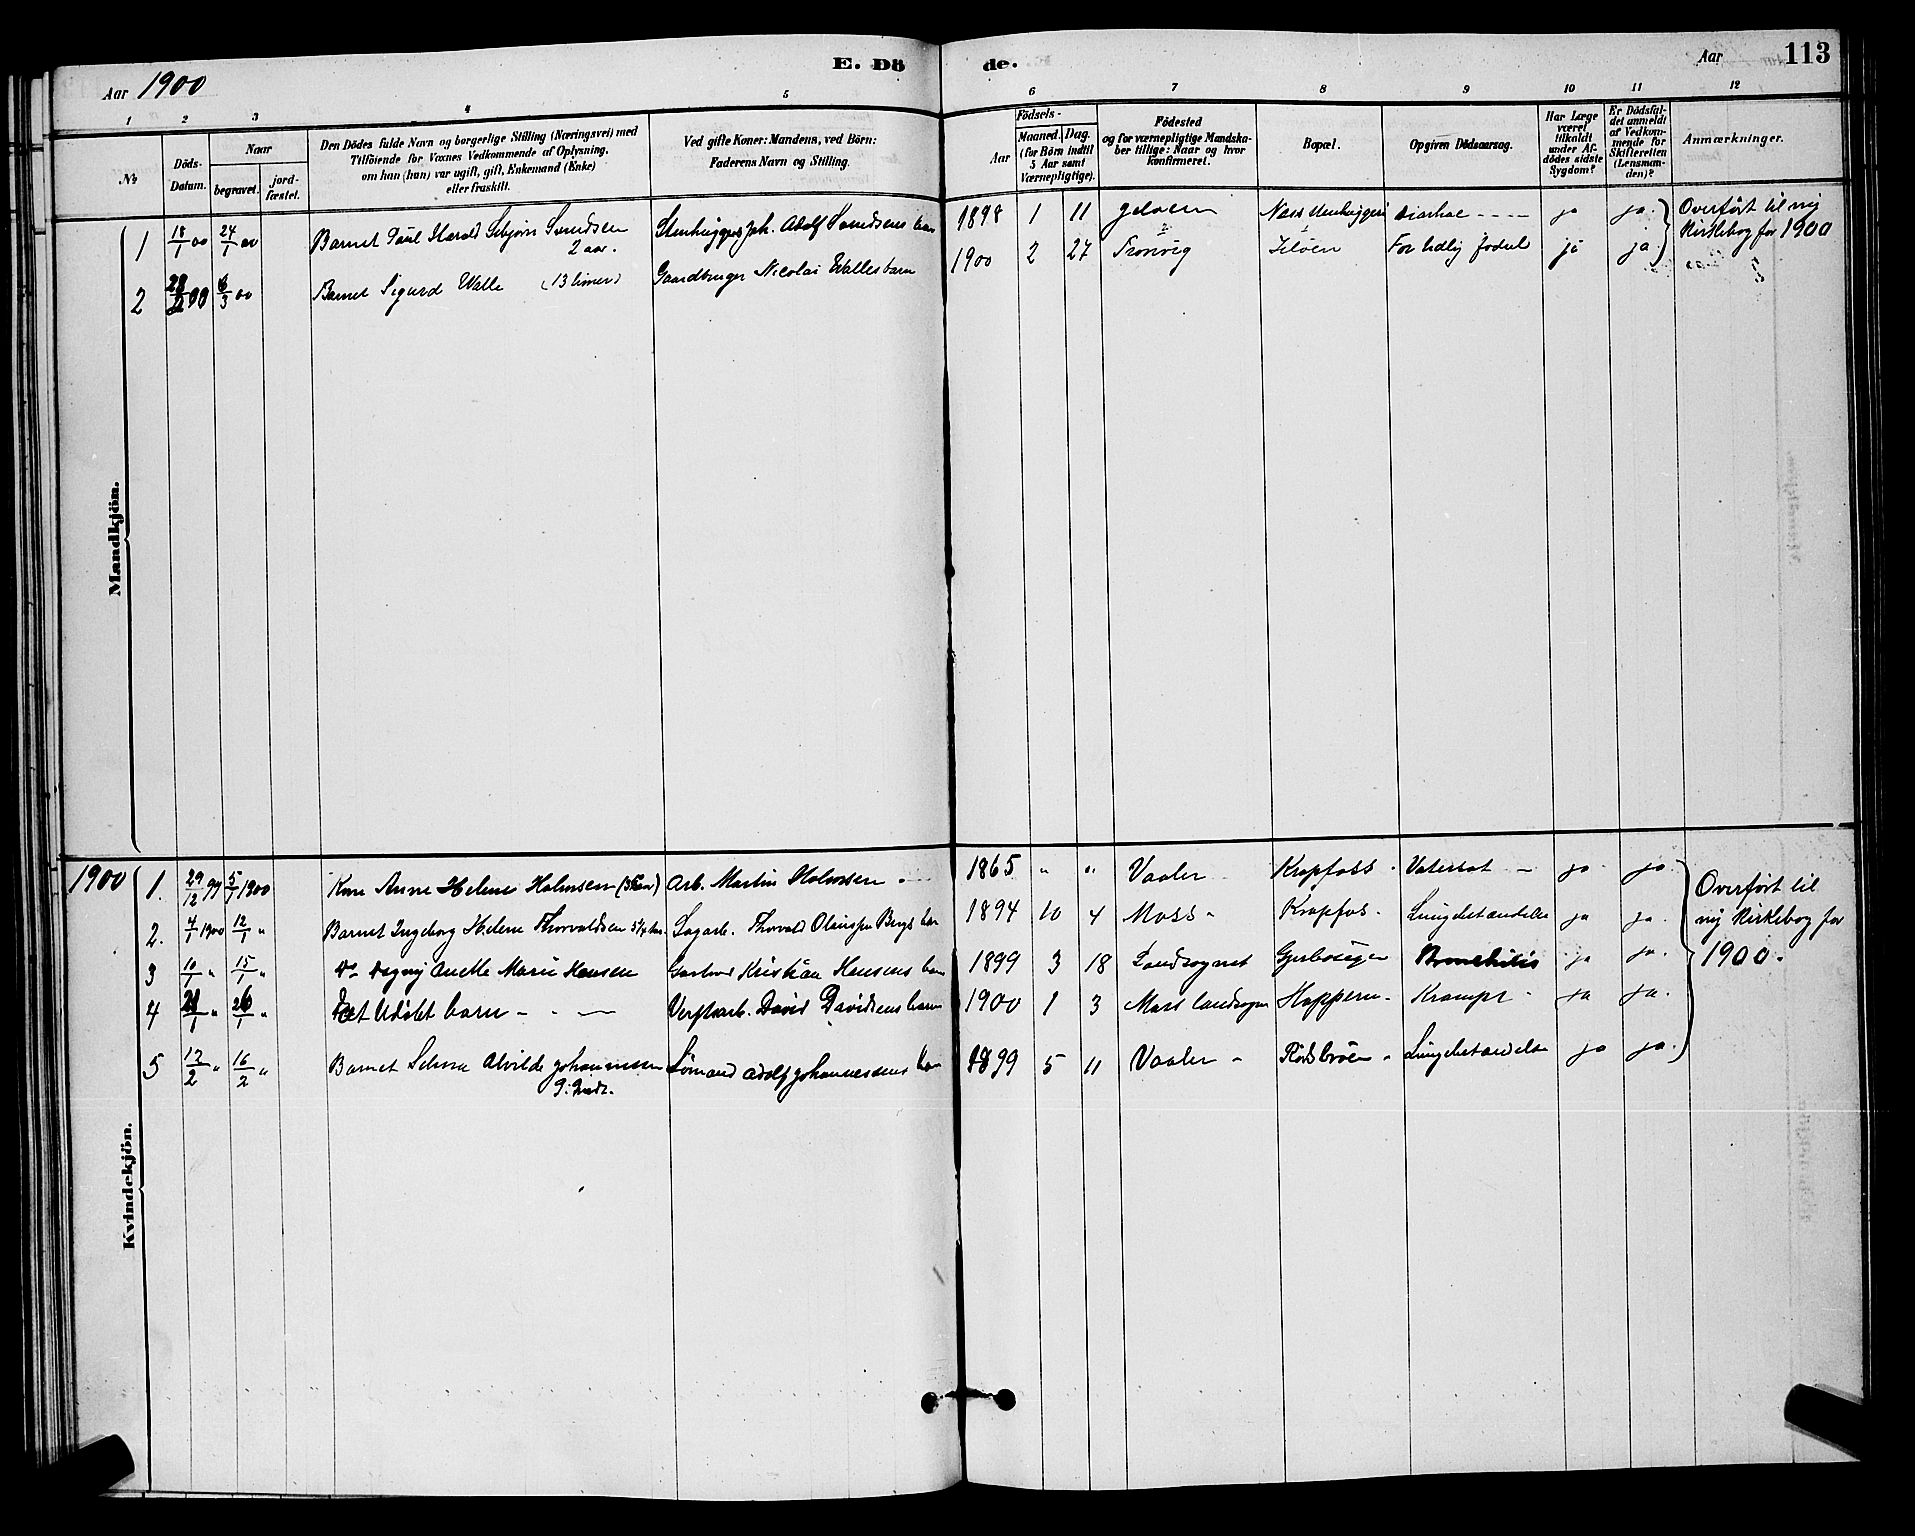 Aar 1900
E. Dö de.
Aar
113
1 2 3 4 5 6 7 8 9 10 11 12
No
Döds-Datum.
Naar
begravet.
jord-fæstet.
Den Dödes fulde Navn og borgerlige Stilling (Næringsvei) med
Tilföiende for Voxnes Vedkommende af Oplysning,
om han (hun) var ugift, gift, Enkemand (Enke)
eller fraskilt.
Ved gifte Koner: Mandens, ved Börn:
Faderens Navn og Stilling.
Födsels-
Aar
Maaned. Dag.
(for Börn indtil
5 Aar samt
Værnepligtige).
Födested
og for værnepligtige Mandska-
ber tillige: Naar og hvor
konfirmeret.
Bopæl.
Opgiven Dödsaarsag.
Har Læge
været
tilkaldt
under Af-
dödes sidste
Sygdom?
Er Dödsfal-
det anmeldt
af Vedkom-
mende for
Skifteretten
(Lensman-
den)?
Anmærkninger.
Mandkjön.
1 18/1 00 24/1 00 Barnet Paul Harald Sebjørn Svendsen Stenhugger Joh. Adolf Svendsens barn 1898 1 11 Jeløen Næss Stenhuggeri Diarhoe ja ja
2 aar.
2 28/2 00 6/3 00 Barnet Sigurd Walle (13 timer) Gaardbruger Nicolai Walles barn 1900 2 27 Tronvig Jeløen For tidlig fødsel ja ja
Overført til ny
Kirkebog for 1900
Kvindekjön.
1900 1. 29/12 99 5/1 1900 Kone Anne Helene Halvorsen Arb. Martin Halvorsen 1865 " " Vaaler Krapfoss Vatersot ja ja
2. 4/1 1900 12/1 " Barnet Ingeborg Helene Thorvaldsen 5 1/4 aar. Sagarb. Thorvald Bergs barn 1894 10 4 Moss Krapfos Lungebetændelse ja ja
3 10/1 " 15/1 " Do Dagny Anette Marie Hansen Kristian Hansens barn 1899 3 18 Landsognet Bronchitis ja ja
4 21/1 " 26/1 " Et Udøbt barn Verftsarb. David Davidsens barn 1900 1 3 Moss landsogn Hoppern Krampe ja ja
5 12/2 " 16/2 " Barnet Selma Alvilde Johannessen Sømand Adolf Johannessens barn 1899 5 11 Vaaler Rødsbrøen Lungebetændelse ja ja
9 Mndr.
Overført til
ny Kirkebog for
1900.